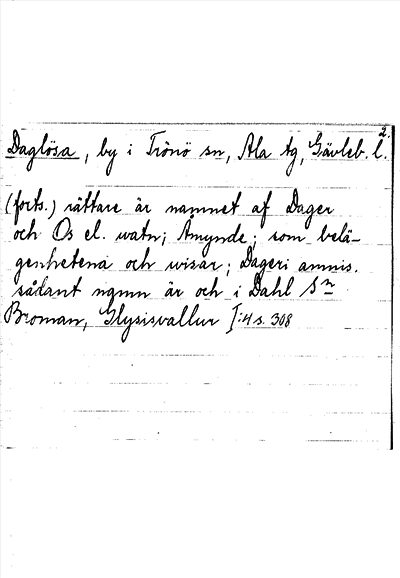 2.
Daglösa, by i Trönö sn, Ala tg, Gävleb. l.
(forts.) rättare är namnet af Dager
och Os el. watn; Åmynde; som belä-
genhetena och wisar; Dageri amnis.
sådant namn är och i Dahl Sn
Broman, Glysisvallur I:4 s. 308